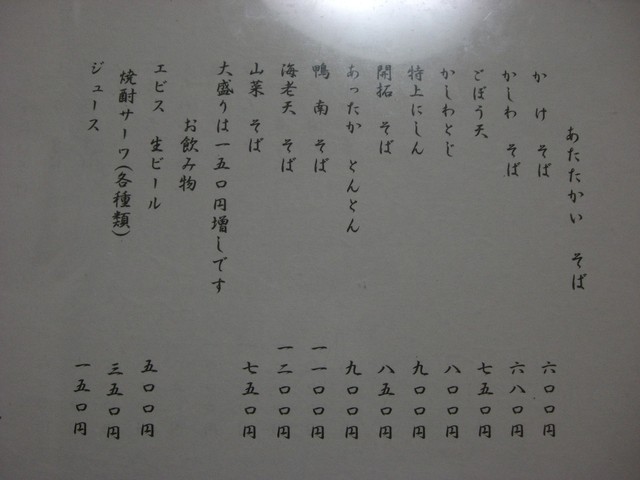 あたたかい そば
かけ そば 六〇〇円
かしわ そば 六八〇円
ごぼう天 七五〇円
かしわとじ 八〇〇円
特上にしん 九〇〇円
開拓 そば 八五〇円
あったか とんとん 九〇〇円
鴨南 そば 一一〇〇円
海老天 そば 一二〇〇円
山菜 そば 七五〇円
大盛りは一五〇円増しです
お飲み物
エビス 生ビール 五〇〇円
焼酎サーワ(各種類) 三五〇円
ジュース 一五〇円